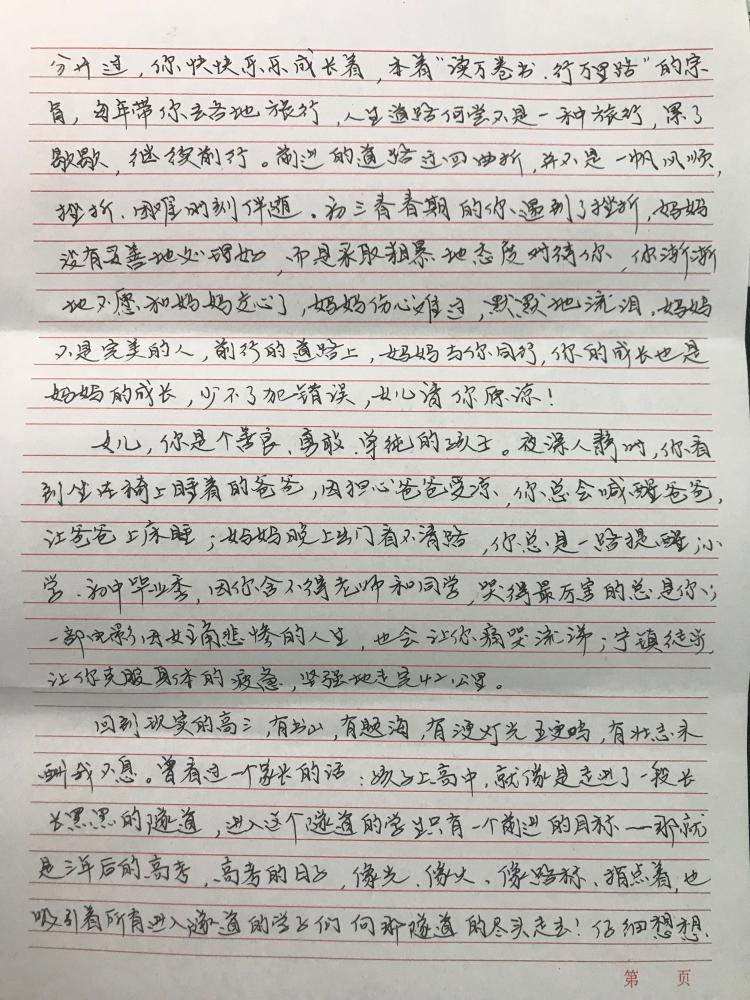 分开过，你快快乐乐成长着，本着“读万卷书、行万里路”的宗
旨，每年带你去各地旅行，人生道路何尝不是一种旅行，累了
歇歇，继续前行。前进的道路迂回曲折，并不是一帆风顺，
挫折、困难时刻伴随。初三青春期的你遇到了挫折，妈妈
没有妥善地处理好，而是采取粗暴地态度对待你，你渐渐
地不愿和妈妈交心了，妈妈伤心难过，默默地流泪，妈妈
不是完美的人，前行的道路上，妈妈与你同行，你的成长也是
妈妈的成长，少不了犯错误，女儿请你原谅！
女儿，你是个善良、勇敢、单纯的孩子。夜深人静时，你看
到坐在椅上睡着的爸爸，因担心爸爸受凉，你总会喊醒爸爸，
让爸爸上床睡；妈妈晚上出门看不清路，你总是一路提醒；小
学、初中毕业季，因你舍不得老师和同学，哭得最厉害的总是你；
一部电影因女主角悲惨的人生，也会让你痛哭流涕；宁镇徒步，
让你克服身体的疲惫，坚强地走完42公里。
回到现实的高三，有书山，有题海，有浸灯光五更鸣，有壮志未
酬我不息。曾看过一个家长的话：孩子上高中，就像是走进了一段长
长黑黑的隧道，进入这个隧道的学生只有一个前进的目标——那就
是三年后的高考，高考的日子，像光、像火、像路标、指点着，也
吸引着所有进入隧道的学子们向那隧道的尽头走去！仔细想想，
第 页